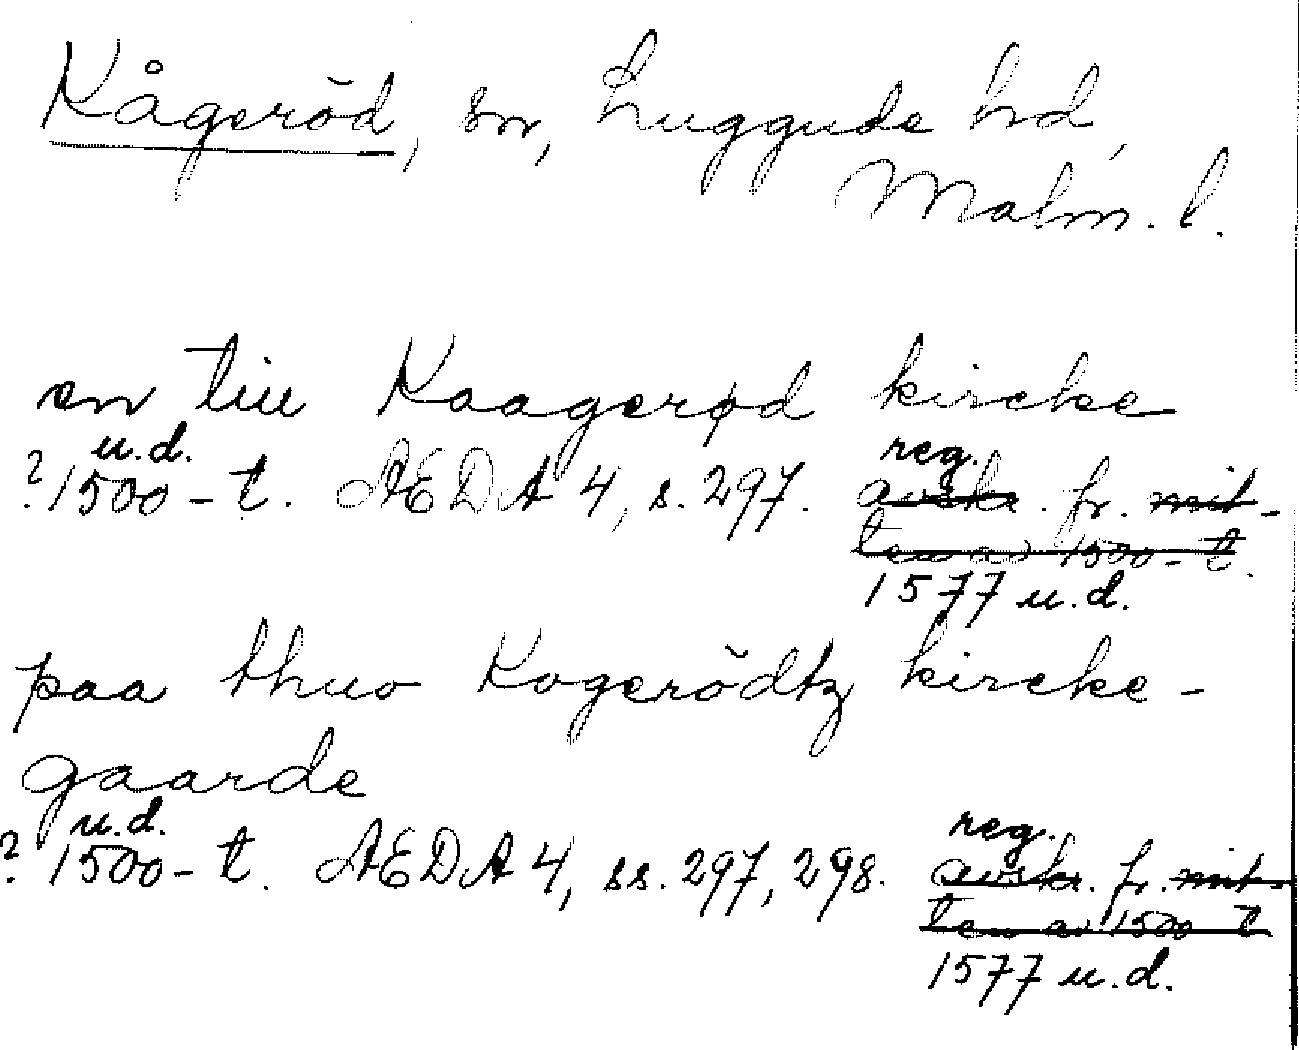 Kågeröd, sn, Luggude hd,
Malm. l.
en till Kaagerød kircke
u.d. reg.
? 1500-t. AEDA 4, s. 297. avskr. fr. mit-
ten av 1500-t.
1577 u.d.
paa thuo Kogerödtz kircke-
gaarde
u.d. reg.
? 1500-t. AEDA 4, ss. 297, 298. avskr. fr. mit-
ten av 1500 t
1577 u.d.